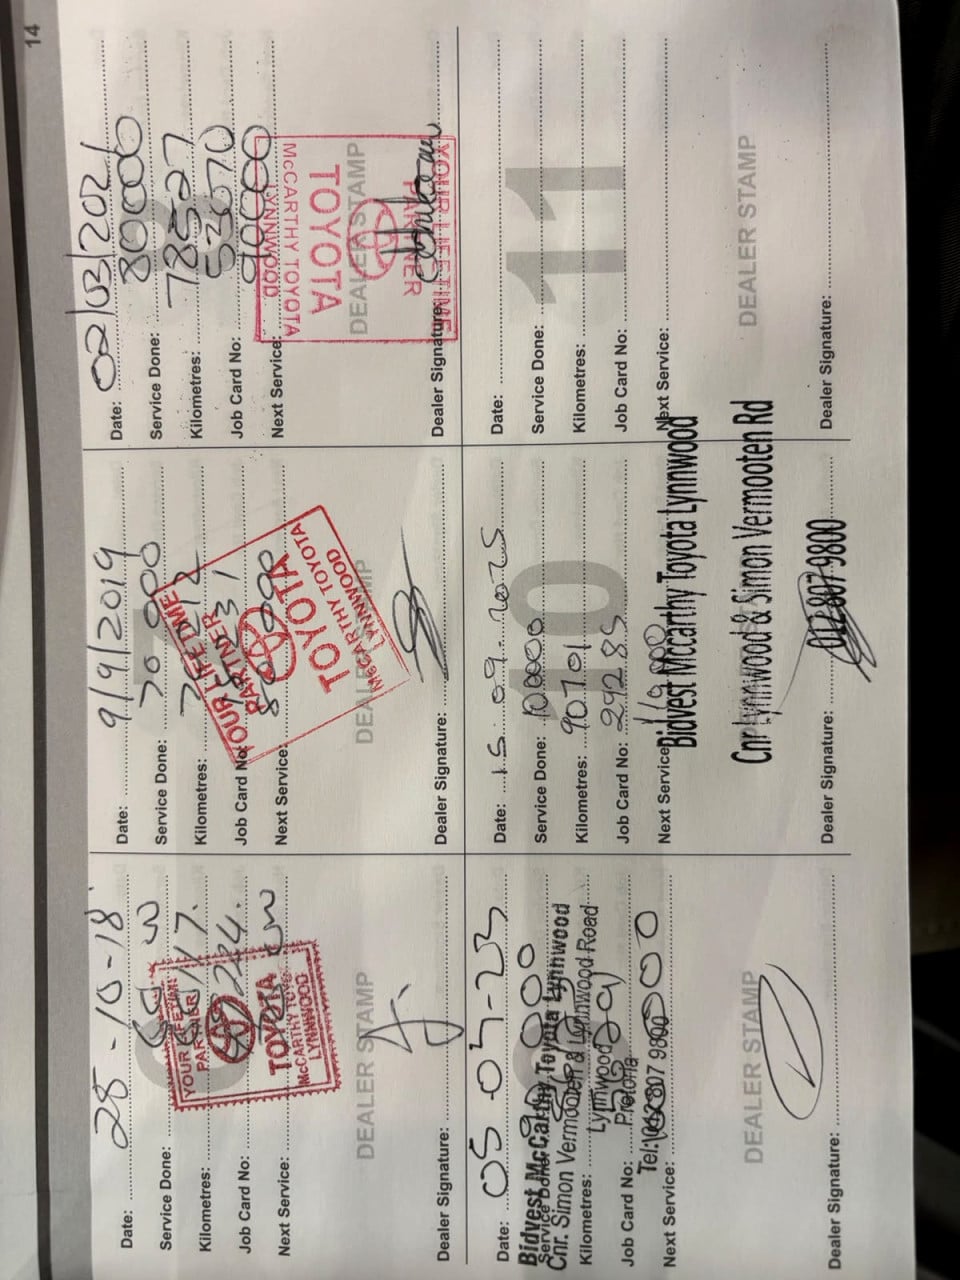 14
Date: 28-10-18
Service Done:
Kilometres:
Job Card No:
Next Service:
YOUR LIFETIME
PARTNER
TOYOTA
McCARTHY TOYOTA
LYNNWOOD
DEALER STAMP
Dealer Signature:
Date: 9/9/2019
Service Done: 70 000
Kilometres:
Job Card No:
Next Service: 80 000
YOUR LIFETIME
PARTNER
TOYOTA
McCARTHY TOYOTA
LYNNWOOD
DEALER STAMP
Dealer Signature:
Date: 02/03/2021
Service Done: 80000
Kilometres: 78527
Job Card No: 53670
Next Service: 90000
LYNNWOOD
McCARTHY TOYOTA
TOYOTA
DEALER STAMP
PARTNER
YOUR LIFETIME
Dealer Signature:
Date: 05-07-23
Service Done: 90 000
Kilometres:
Job Card No:
Next Service:
Bidvest McCarthy Toyota Lynnwood
Cnr. Simon Vermooten & Lynnwood Road
Lynnwood
Pretoria
Tel: 012 807 9800
DEALER STAMP
Dealer Signature:
10
Date: 15.09.2025
Service Done: 100000
Kilometres: 90701
Job Card No: 29285
Next Service:
Bidvest Mccarthy Toyota Lynnwood
Cnr Lynnwood & Simon Vermooten Rd
012 807 9800
Dealer Signature:
11
Date:
Service Done:
Kilometres:
Job Card No:
Next Service:
DEALER STAMP
Dealer Signature: